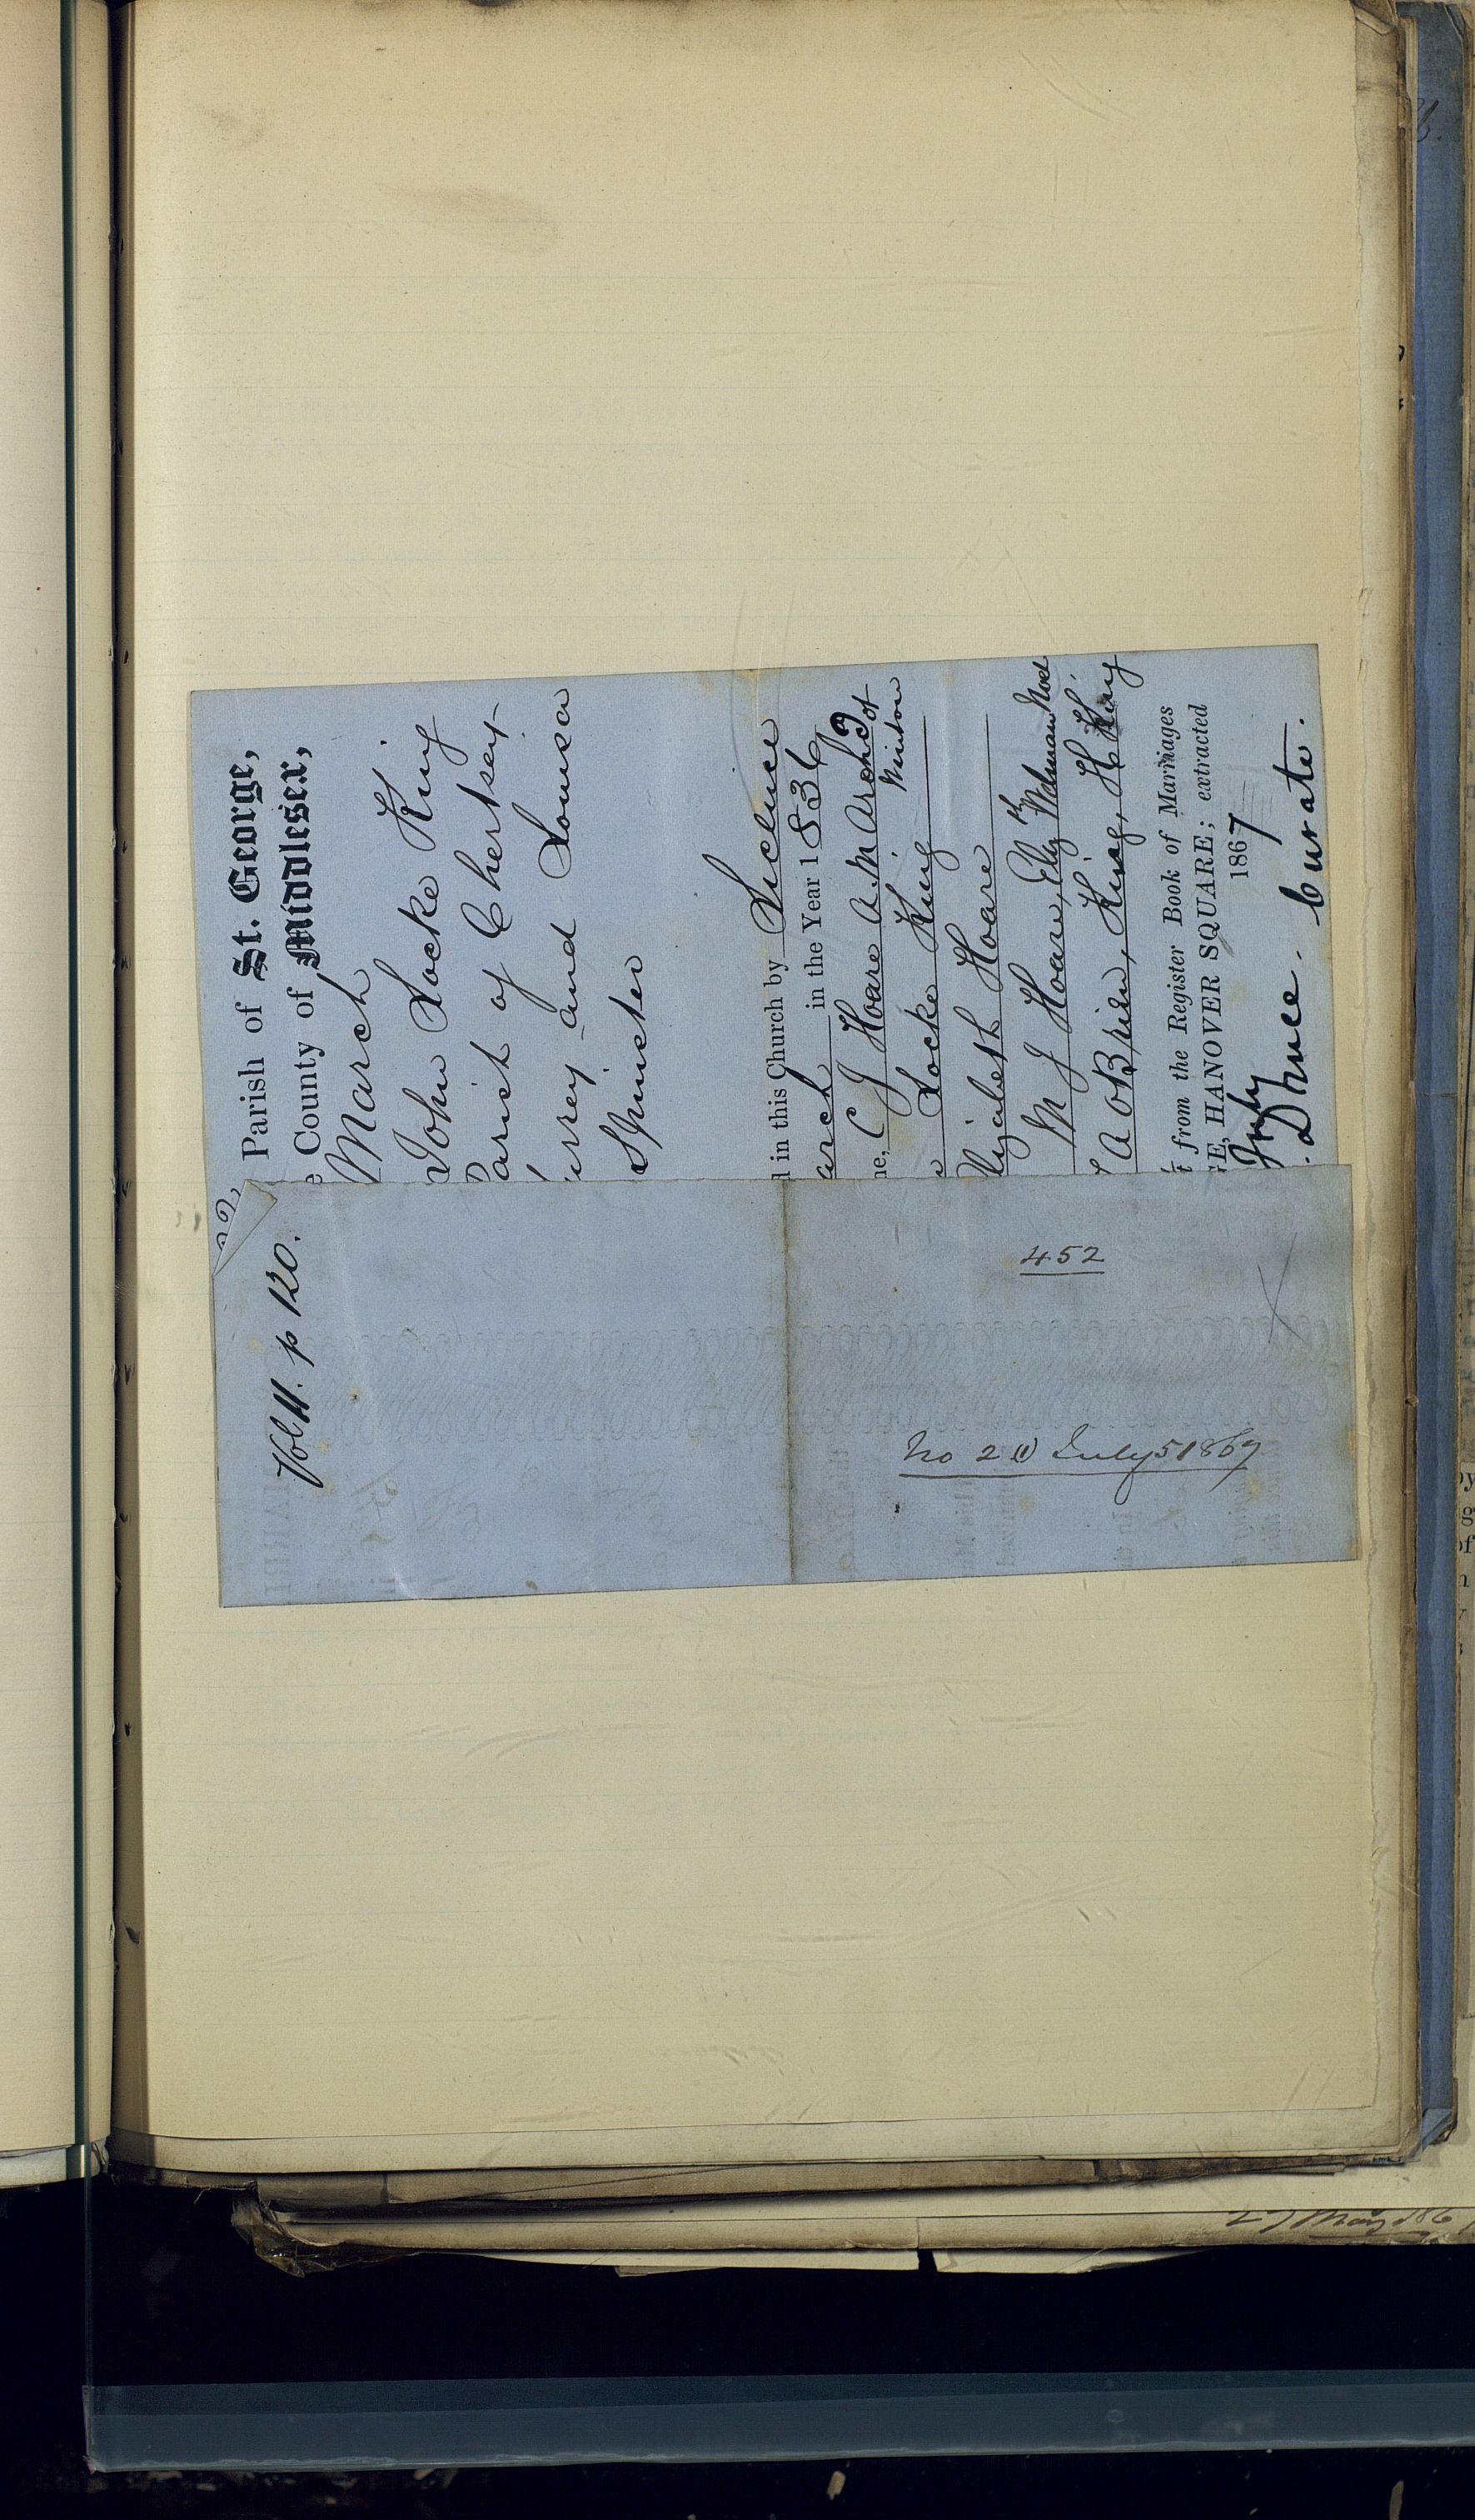 Parish of St. George,
County of Middlesex,
March
John Locke King
Parish of Chertsey
and Louisa
Spinster
in this Church by Licence
arch in the Year 1836
C J Hoare A. M Archd of
Winton
Locke King
lizabeth Hoare
M J Hoare, Eliz th Welman Noel
A OBrien, King, H King
from the Register Book of Marriages
GE, HANOVER SQUARE; extracted
July 1867
Druce. Curate.
Vol 11. p 120.
452
No 2 (1) July 5 1867